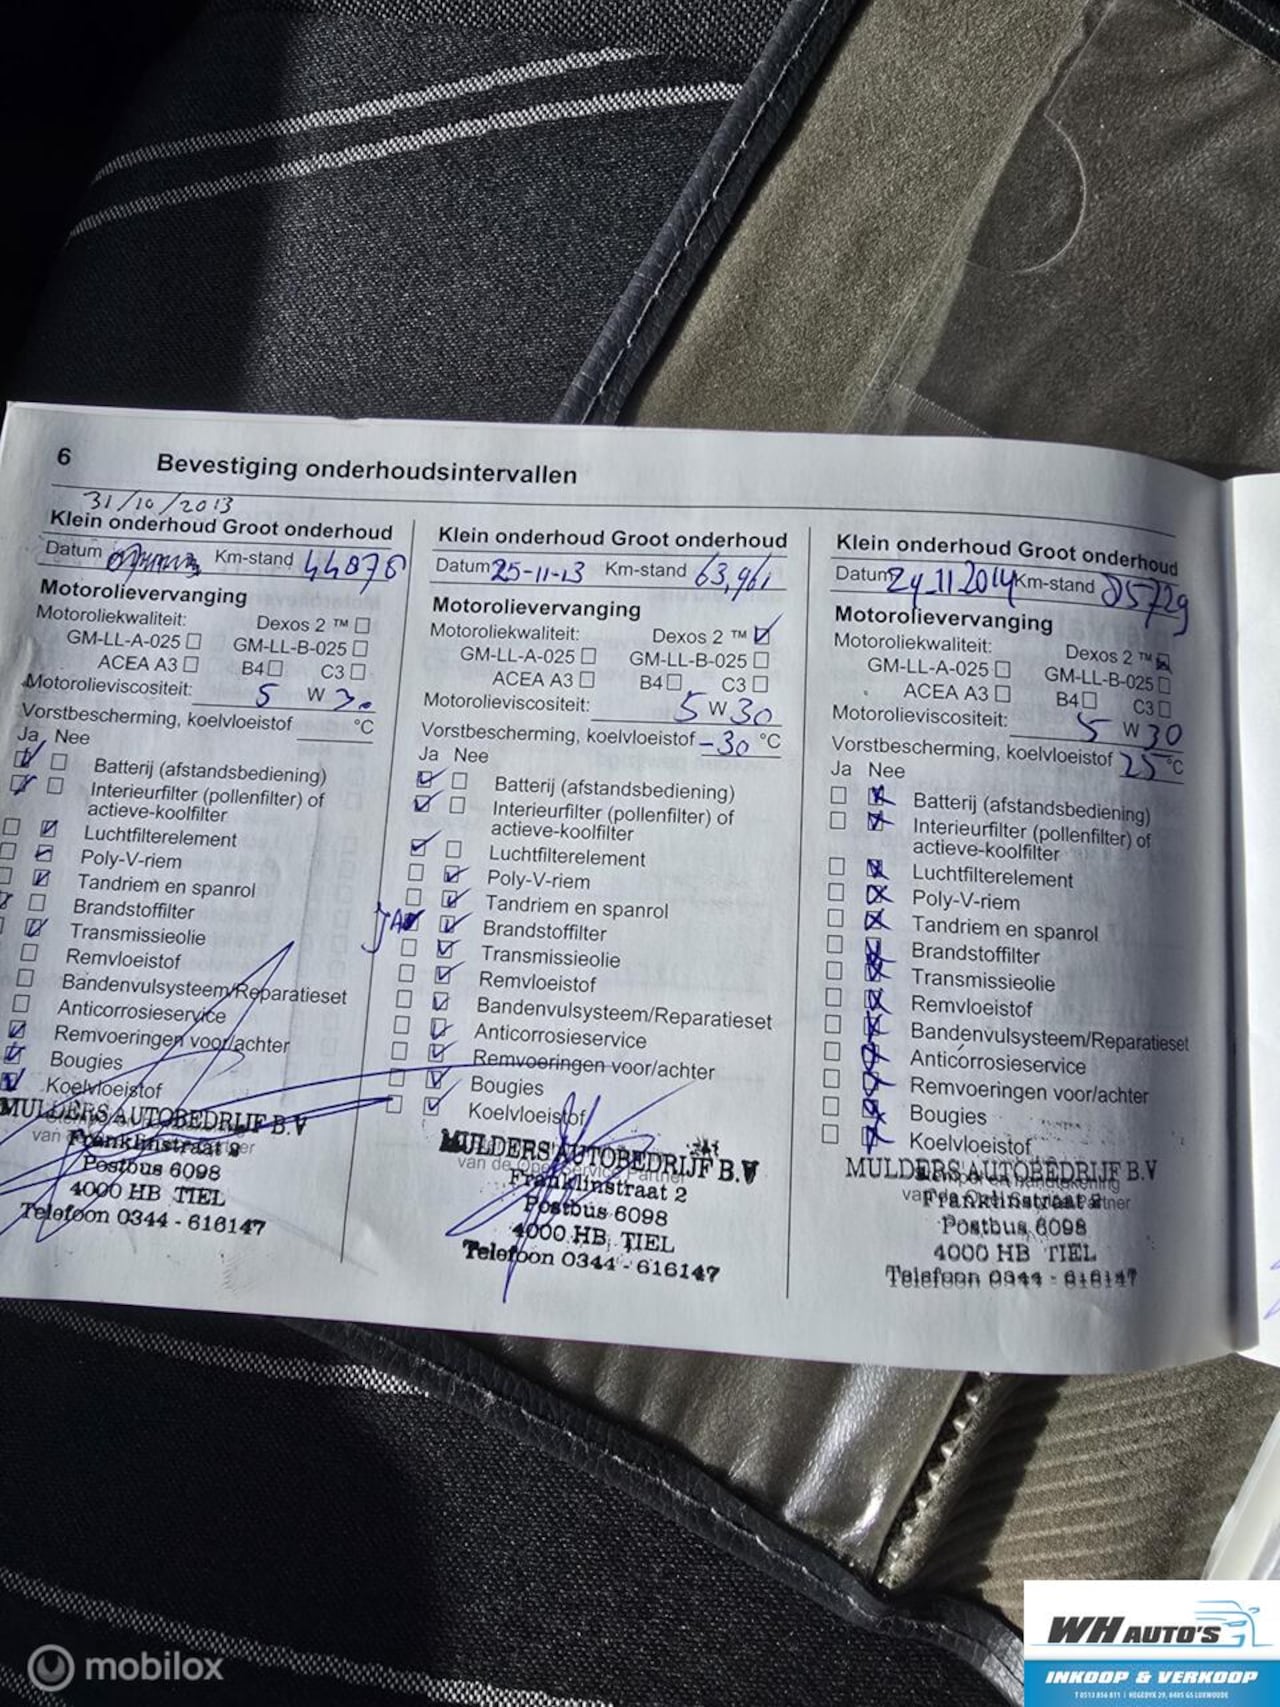 6 Bevestiging onderhoudsintervallen
31/10/2013
Klein onderhoud Groot onderhoud
Datum Km-stand 44876
Motorolievervanging
Motoroliekwaliteit: Dexos 2 ™
GM-LL-A-025 GM-LL-B-025
ACEA A3 B4 C3
Motorolieviscositeit: 5 W 30
Vorstbescherming, koelvloeistof °C
Ja Nee
Batterij (afstandsbediening)
Interieurfilter (pollenfilter) of
actieve-koolfilter
Luchtfilterelement
Poly-V-riem
Tandriem en spanrol
Brandstoffilter
Transmissieolie
Remvloeistof
Bandenvulsysteem/Reparatieset
Anticorrosieservice
Remvoeringen voor/achter
Bougies
Koelvloeistof
MULDERS AUTOBEDRIJF B.V
van de
Franklinstraat 2
Postbus 6098
4000 HB TIEL
Telefoon 0344 - 616147
Klein onderhoud Groot onderhoud
Datum 25-11-13 Km-stand 63,961
Motorolievervanging
Motoroliekwaliteit: Dexos 2 ™
GM-LL-A-025 GM-LL-B-025
ACEA A3 B4 C3
Motorolieviscositeit: 5 W 30
Vorstbescherming, koelvloeistof -30 °C
Ja Nee
Batterij (afstandsbediening)
Interieurfilter (pollenfilter) of
actieve-koolfilter
Luchtfilterelement
Poly-V-riem
Tandriem en spanrol
JA Brandstoffilter
Transmissieolie
Remvloeistof
Bandenvulsysteem/Reparatieset
Anticorrosieservice
Remvoeringen voor/achter
Bougies
Koelvloeistof
MULDERS AUTOBEDRIJF B.V
van de Opel Service Partner
Franklinstraat 2
Postbus 6098
4000 HB TIEL
Telefoon 0344 - 616147
Klein onderhoud Groot onderhoud
Datum 24-11-2014 Km-stand 85729
Motorolievervanging
Motoroliekwaliteit: Dexos 2 ™
GM-LL-A-025 GM-LL-B-025
ACEA A3 B4 C3
Motorolieviscositeit: 5 W 30
Vorstbescherming, koelvloeistof 25 °C
Ja Nee
Batterij (afstandsbediening)
Interieurfilter (pollenfilter) of
actieve-koolfilter
Luchtfilterelement
Poly-V-riem
Tandriem en spanrol
Brandstoffilter
Transmissieolie
Remvloeistof
Bandenvulsysteem/Reparatieset
Anticorrosieservice
Remvoeringen voor/achter
Bougies
Koelvloeistof
MULDERS AUTOBEDRIJF B.V
Stempel en handtekening
van de Opel Service Partner
Franklinstraat 2
Postbus 6098
4000 HB TIEL
Telefoon 0344 - 616147
mobilox
WH AUTO'S
INKOOP & VERKOOP
T 0513 856 811 | HEGEDYK 29, 8405 GS LUXWOUDE